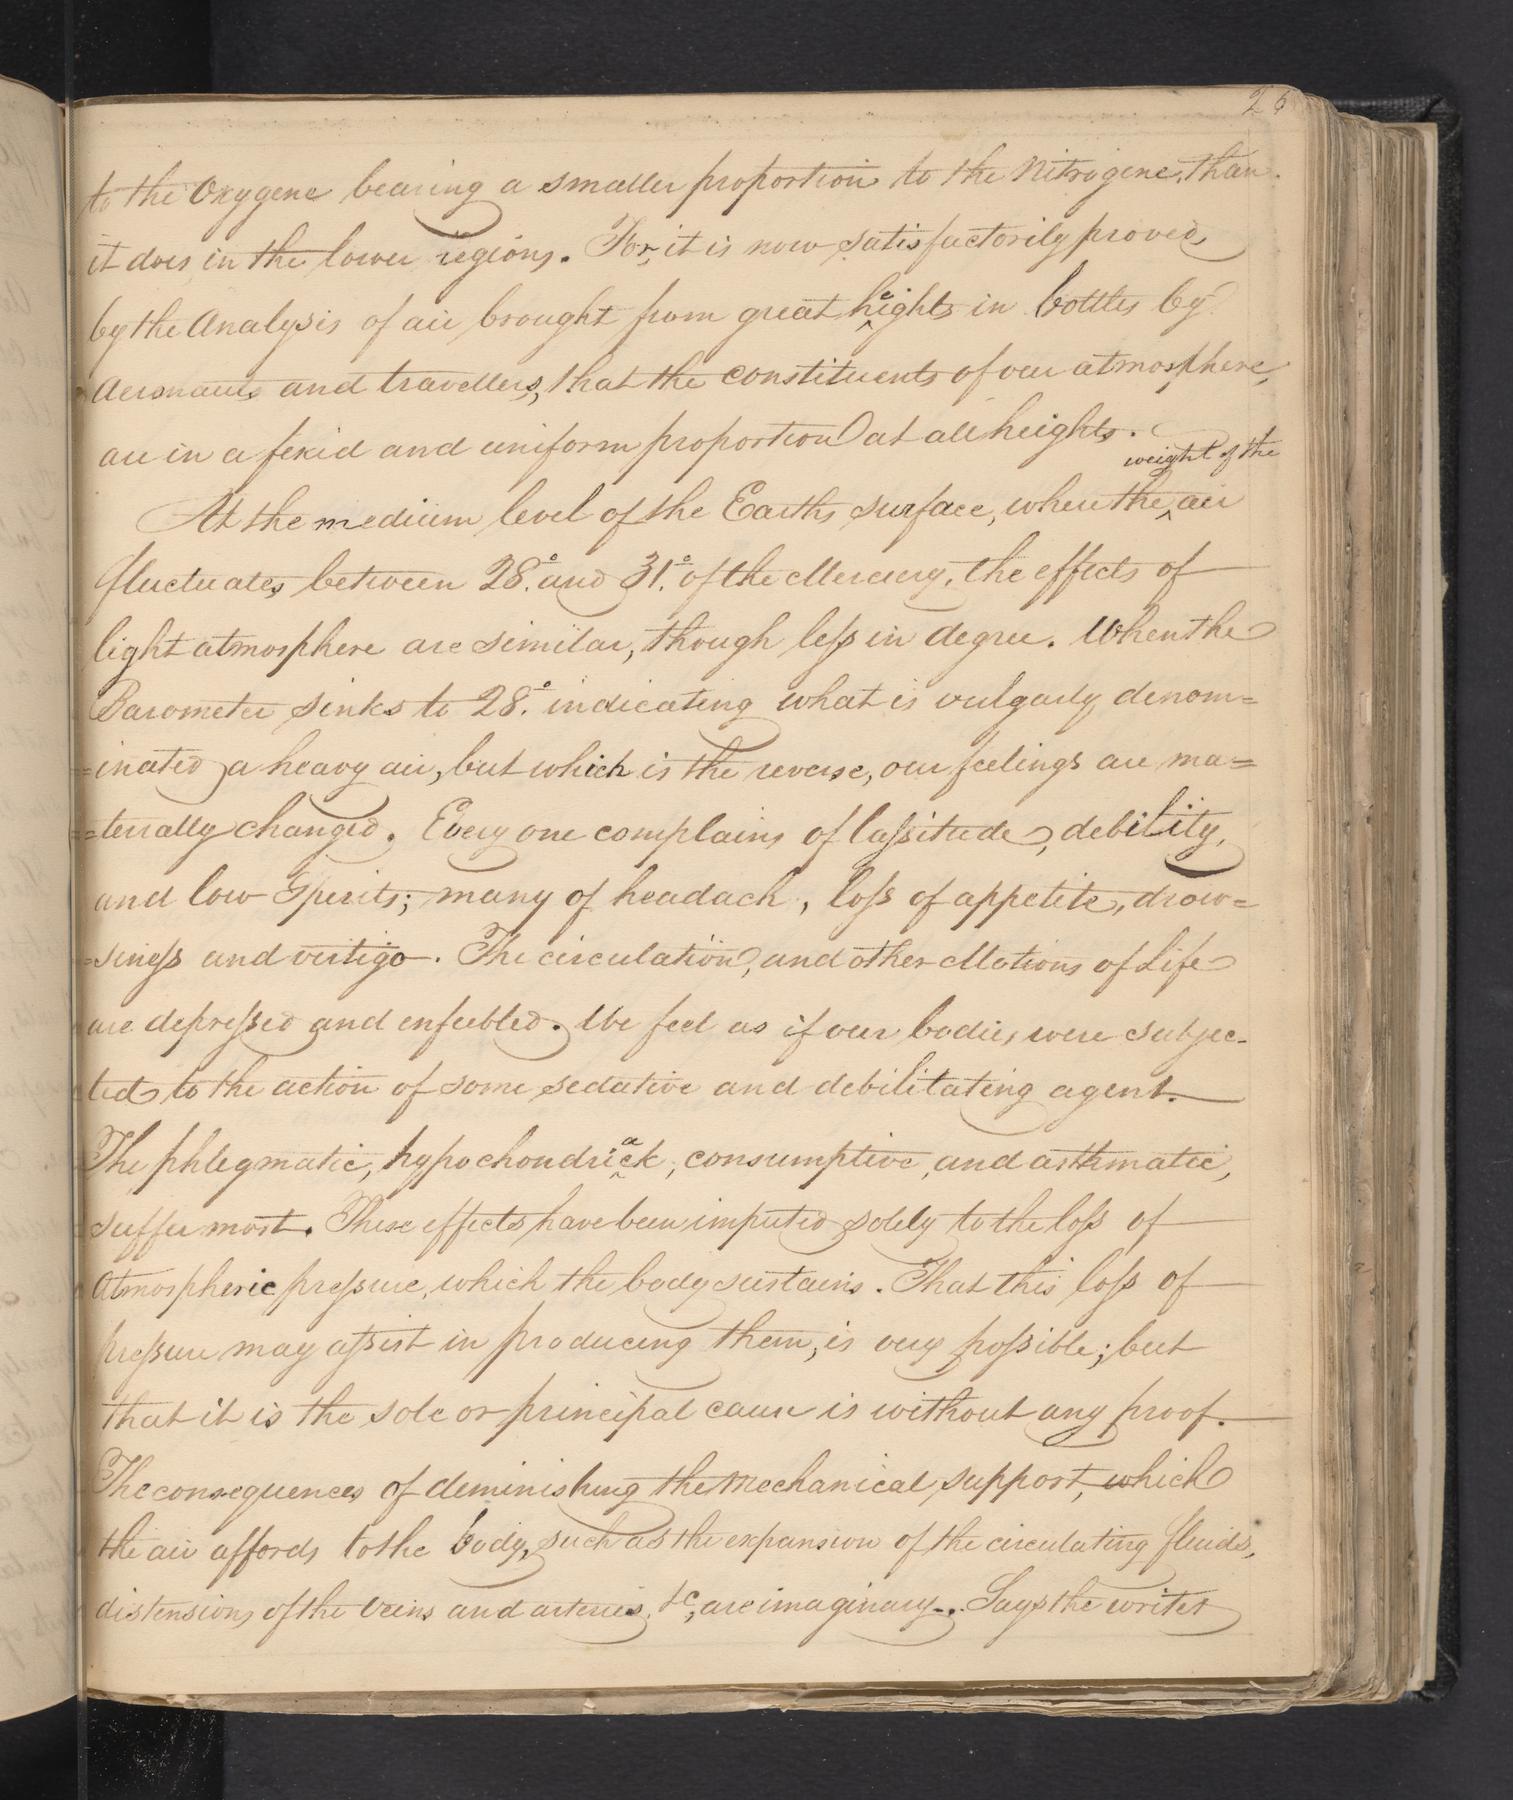 26
to the Oxygene bearing a smaller proportion to the Nitrogene, than
it does in the lower regions. For, it is now satisfactorily proved,
by the Analysis of air brought from great heights in bottles by
Aeronauts and travellers, that the constituents of our atmosphere,
are in a fixid and uniform proportion at all heights.
At the medium level of the Earths surface, when the weight of the air
fluctuates between 28.° and 31.° of the Mercury, the effects of
light atmosphere are similar, though less in degree. When the
Barometer sinks to 28.° indicating what is vulgarly denom=
=inated a heavy air, but which is the reverse, our feelings are ma=
=terially changed. Every one complains of lassitude, debility,
and low Spirits; many of headach, loss of appetite, drow=
=siness and vertigo. The circulation, and other Motions of Life
are depressed and enfeebled. We feel as if our bodies were subjec-
ted to the action of some sedative and debilitating agent.
The phlegmatic, hypochondriack, consumptive, and asthmatic,
suffer most. These effects have been imputed solely to the loss of
Atmospheric pressure, which the body sustains. That this loss of
pressure may assist in producing them, is very possible; but
that it is the sole or principal cause is without any proof.
The consequences of deminishing the Mechanical support, which
the air affords to the body, such as the expansion of the circulating fluids,
distensions of the Veins and arteries, &c, are imaginary. Says the writer